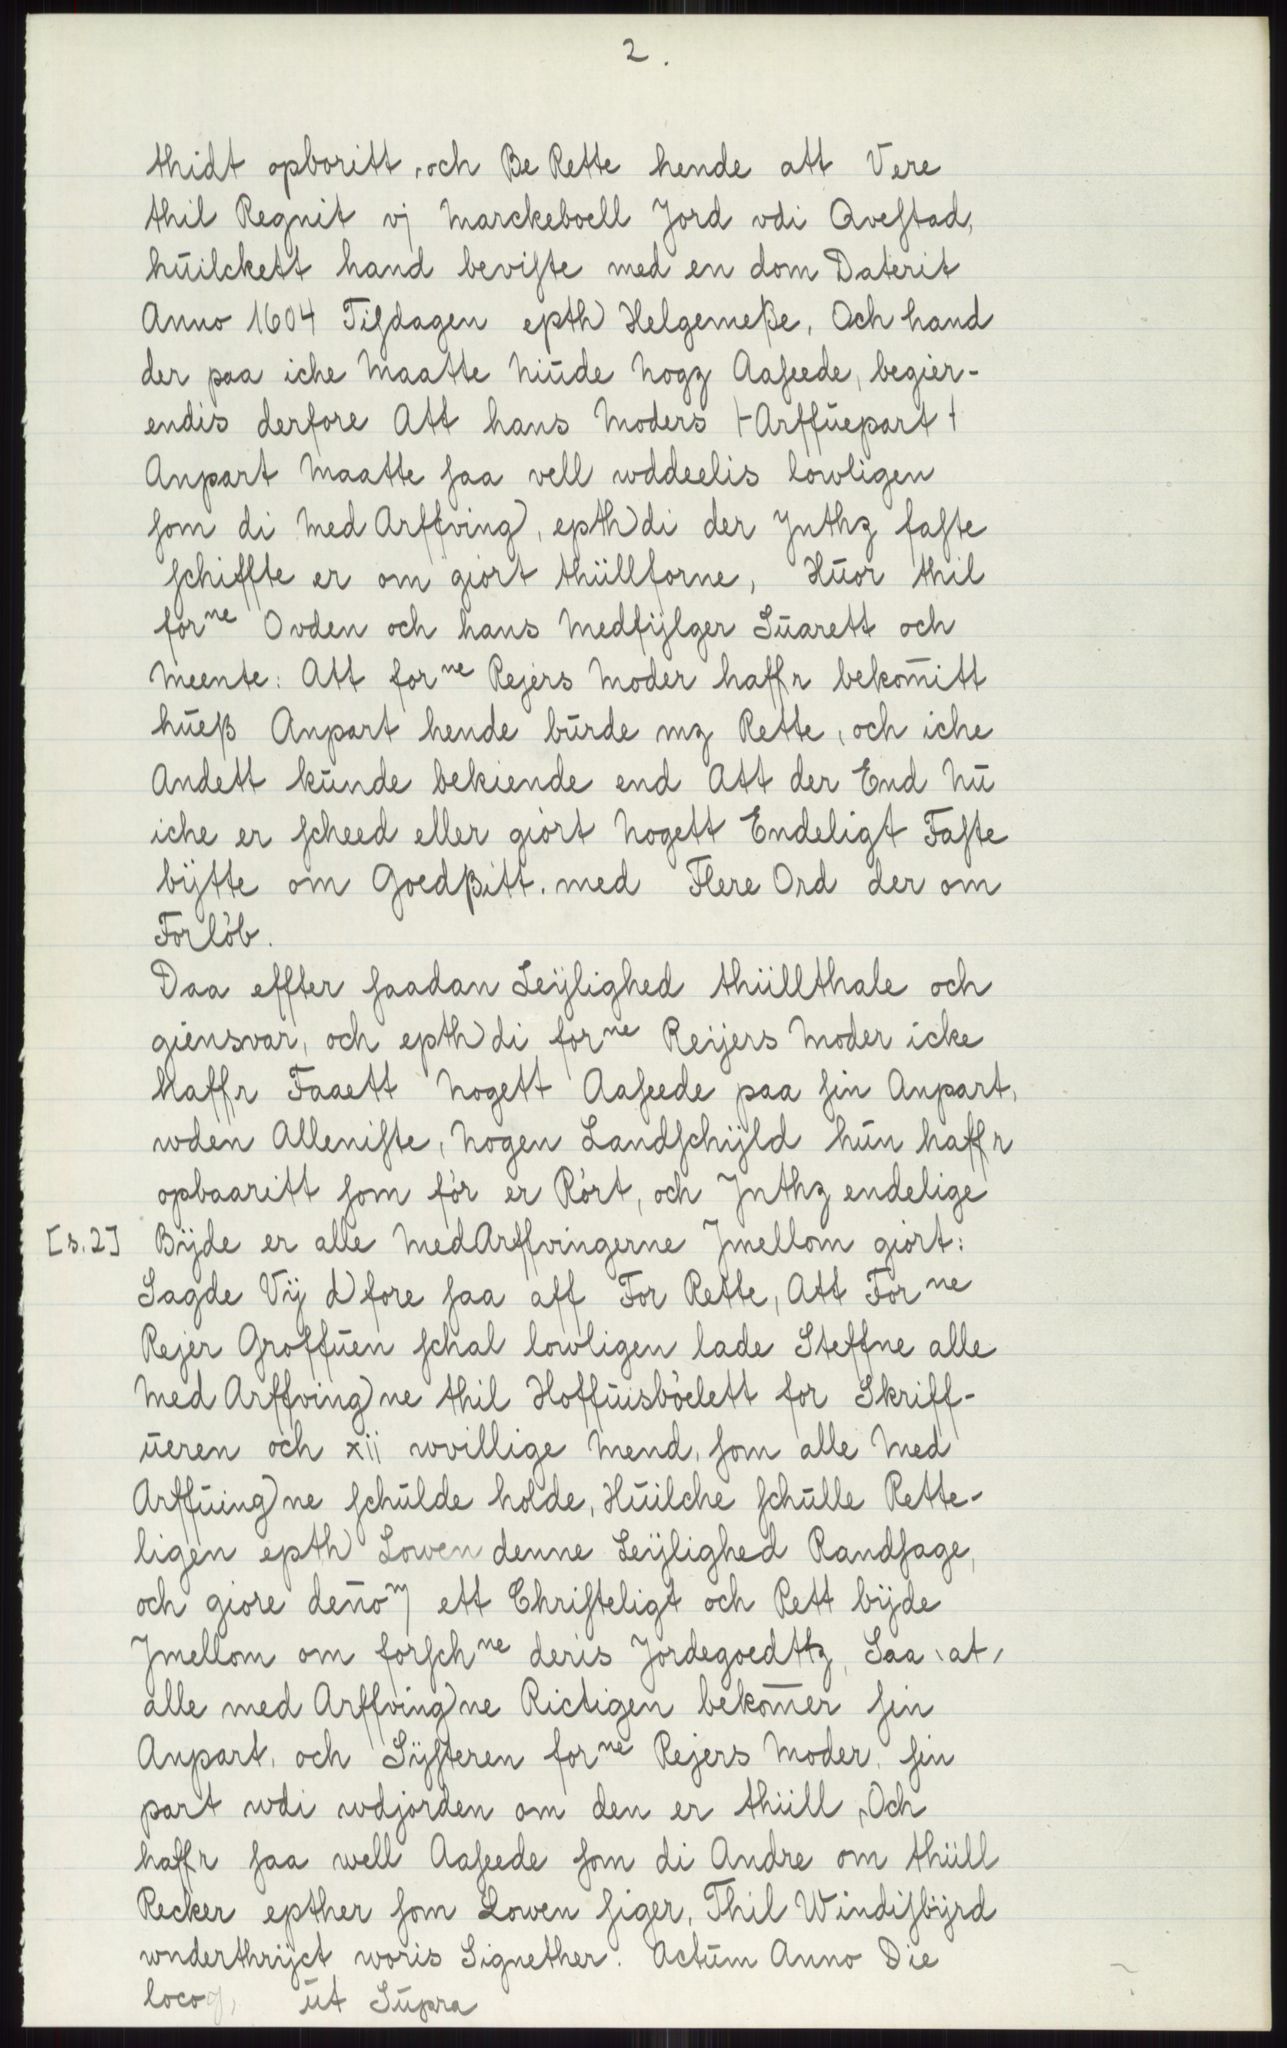 2.
thidt opboritt, och Be Rette hende att Vere
thil Regnit vj Marckeboell Jord vdi Qveſtad,
hŭilckett hand beviſte med en dom Daterit
Anno 1604 Tiſdagen epth) Helgemeße, Och hand
der paa iche Maatte Niŭde Nogꝫ Aaſeede, begier-
endis derfore Att hans Moders ⊢ Arffŭepart ⊣
Anpart Maatte ſaa vell wddeelis lowligen
ſom di Med Arffving), epth)di der Jnthꝫ faſte
ſchiffte er om giort thüllforne, Hŭor thil
forⁿᵉ Ovden och hans Medfÿlger Sŭarett och
Meente: Att forⁿᵉ Rejers Moder haffr bekom̄itt
hŭeß Anpart hende bŭrde mꝫ Rette, och iche
Andett kŭnde bekiende end Att der End Nŭ
iche er ſcheed eller giort Nogett Endeligt Faſte
bÿtte om Goedßitt. med Flere Ord der om
Forlöb.
Daa effter ſaadan Leÿlighed thüllthale och
giensvar, och epth)di forⁿᵉ Reijers Moder icke
Haffr Faaett Nogett Aaſeede paa ſin Anpart,
wden Alleniſte, Nogen Landſchÿld hŭn haffr
opbaaritt ſom för er Rört, och Jnthꝫ endelige
[s. 2] Bÿde er alle MedArffvingerne Jmellom giort:
Sagde Vÿ d)fore ſaa aff For Rette, Att Forⁿᵉ
Rejer Groffŭen ſchal lowligen lade Steffne alle
Med Arffving)ne thil Hoffŭisböelett for Skriff-
ŭeren och xii wvillige Mend, ſom alle Med
Arffŭing)ne ſchŭlde holde, Hŭilche ſchŭlle Rette-
ligen epth) Lowen denne Leÿlighed Randſage,
och giore den̄om ett Chriſteligt och Rett bÿde
Jmellom om forſchⁿᵉ deris Jordegoedttꝫ, Saa, at,
alle med Arffving)ne Rictigen bekom̄er ſin
Anpart, och Sÿſteren forⁿᵉ Rejers Moder, ſin
part wdi wdjorden om den er thüll, Och
haffr ſaa well Aaſeede ſom di Andre om thüll
Recker epther ſom Lowen ſiger, Thil Windiſbÿrd
wnderthrÿct woris Signether. Actŭm Anno Die
locoq, ŭt Sŭpra